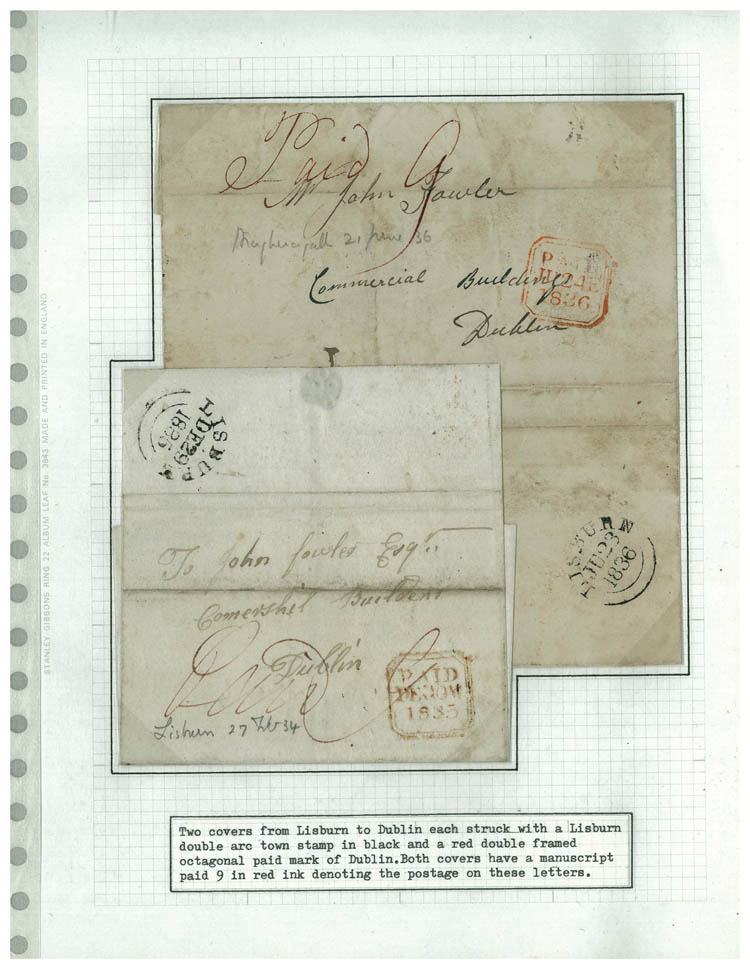 Paid 9
Mr John Fowler
Magheragall 21 June 36
Commercial Buildings
Dublin
PAID
JU24E
1836
LISBURN
JU23
1836
LISBURN
DE29
1835
To John fowler Esqr
Comershil Buildens
Dublin
Paid
PAID
DE30M
1835
Lisburn 27
34
STANLEY GIBBONS RING 22 ALBUM LEAF No. 3843 MADE AND PRINTED IN ENGLAND
Two covers from Lisburn to Dublin each struck with a Lisburn
double arc town stamp in black and a red double framed
octagonal paid mark of Dublin.Both covers have a manuscript
paid 9 in red ink denoting the postage on these letters.